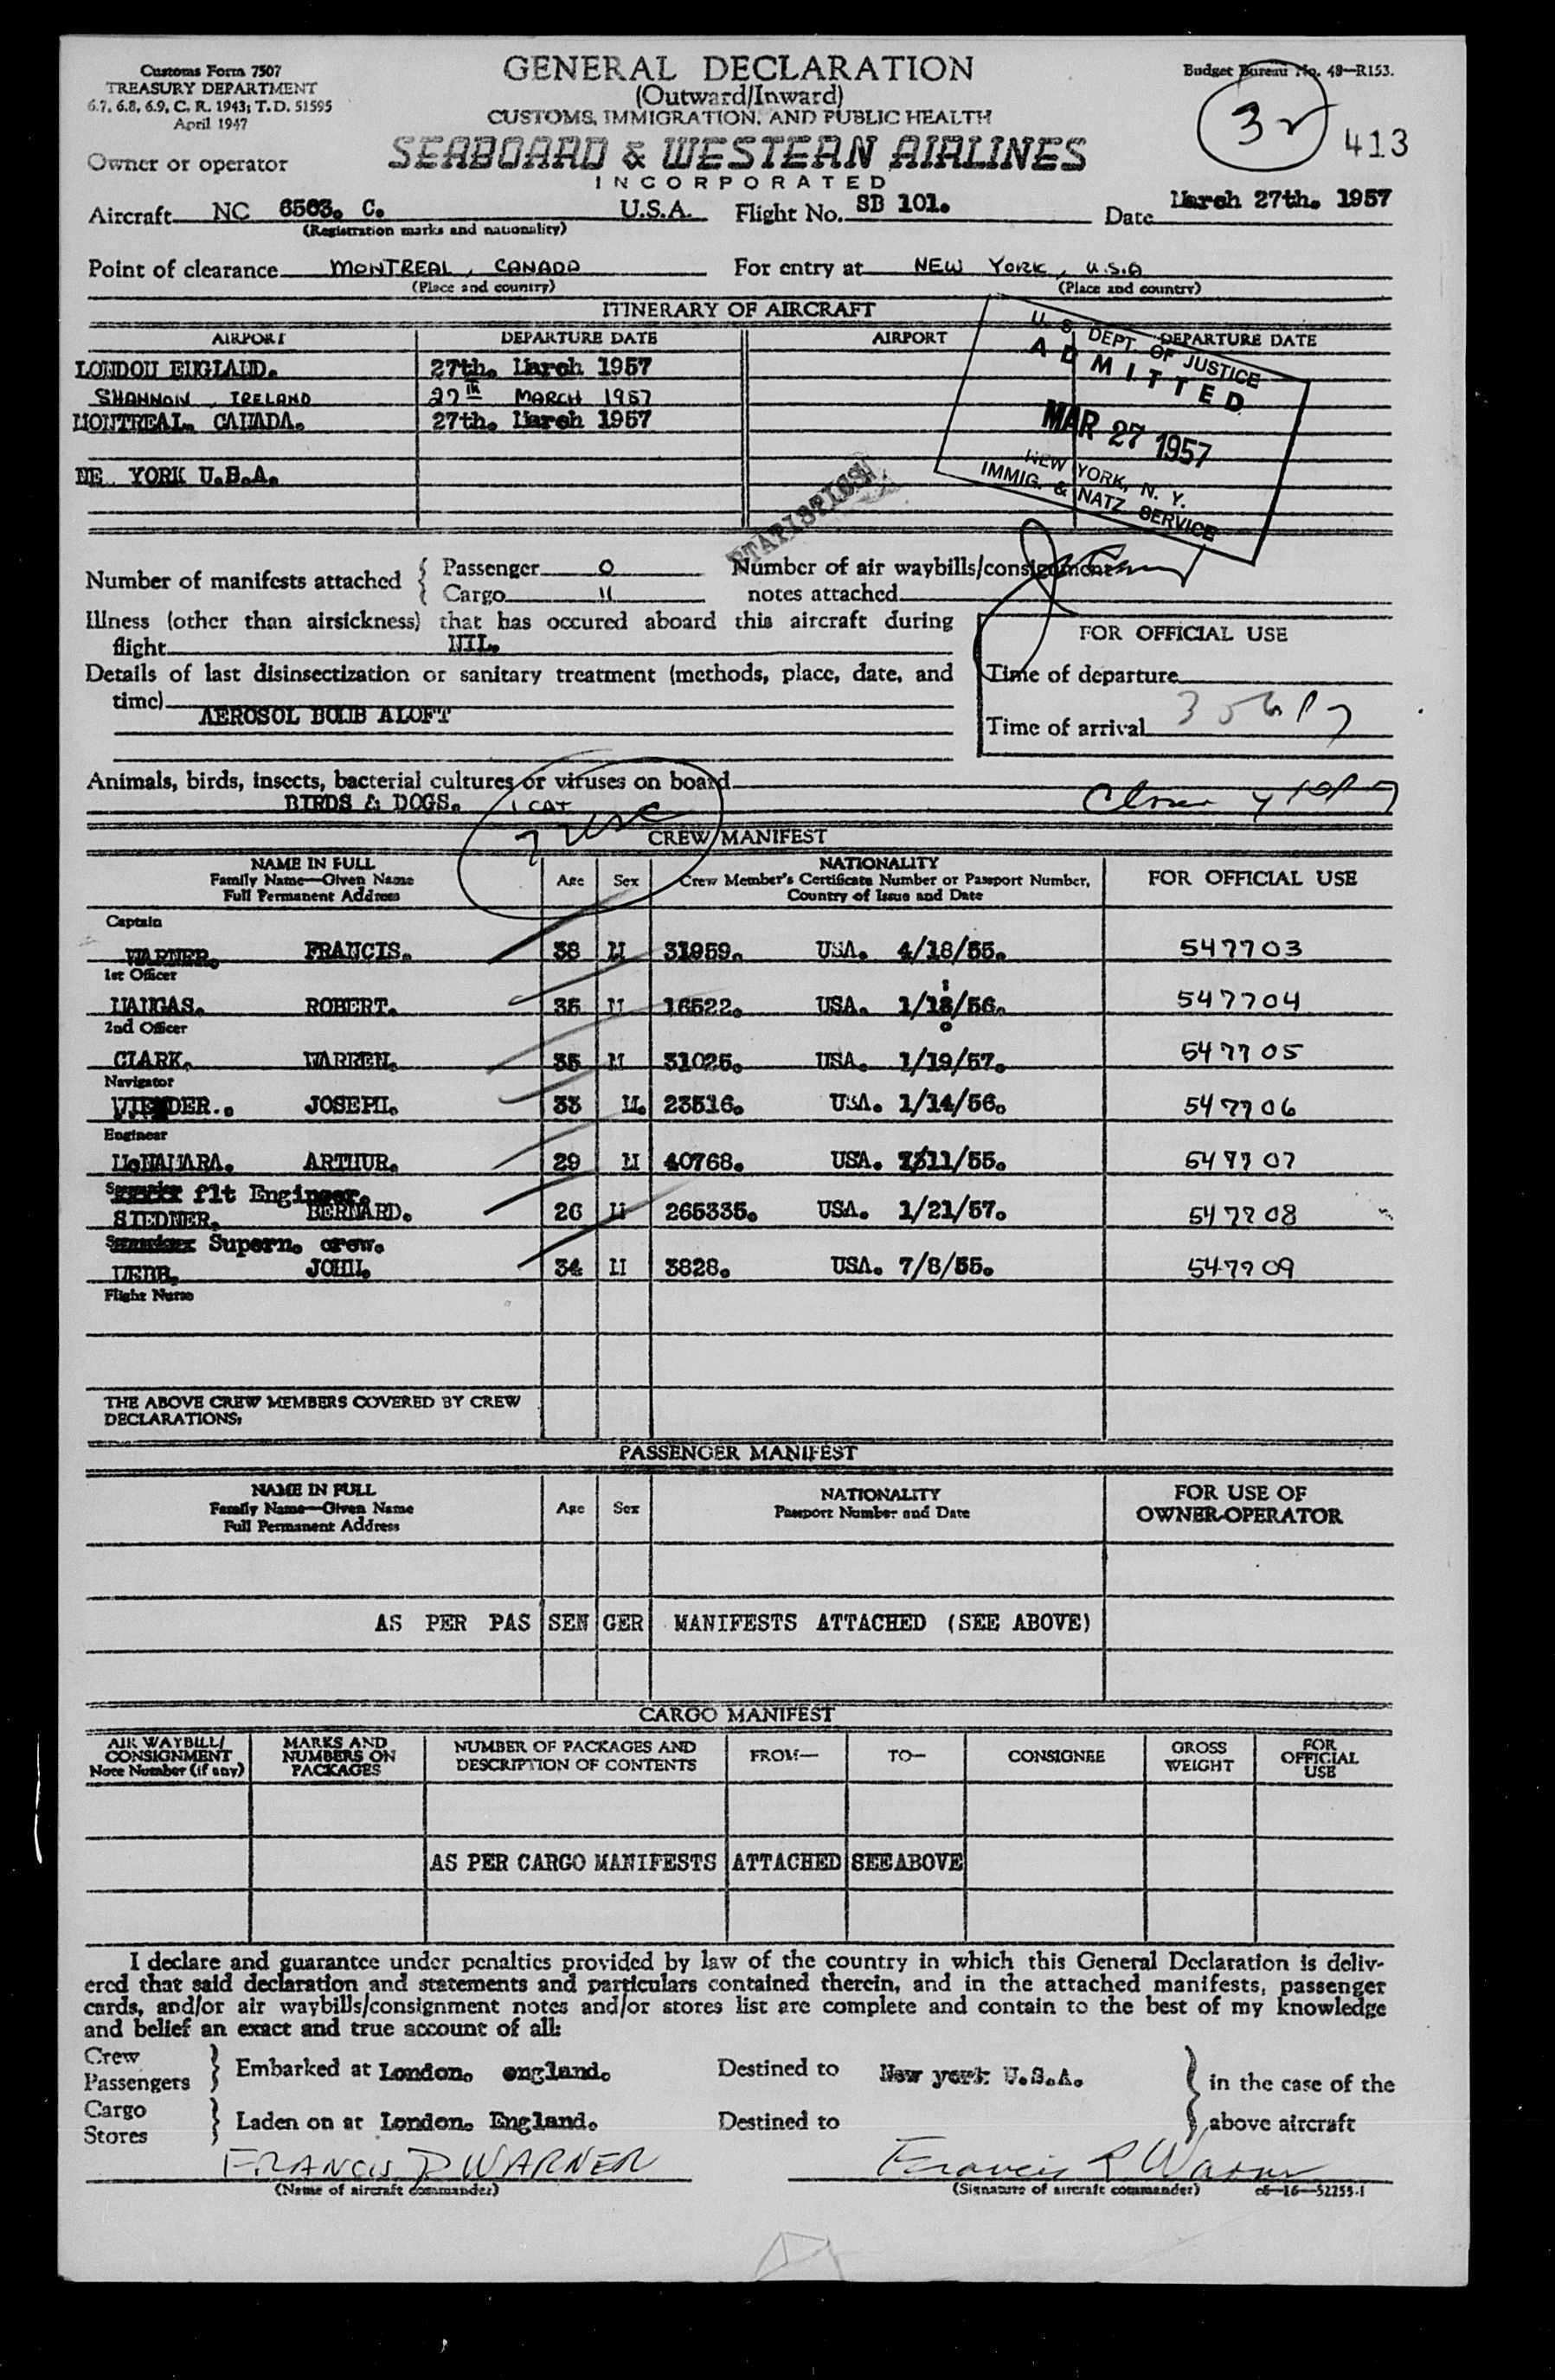 Customs Form 7507
TREASURY DEPARTMENT
6.7, 6.8, 6.9, C. R. 1943; T. D. 51595
April 1947
GENERAL DECLARATION
(Outward/Inward)
CUSTOMS, IMMIGRATION, AND PUBLIC HEALTH
Budget Bureau No. 48—R153.
32 413
Owner or operator SEABOARD & WESTERN AIRLINES
INCORPORATED
Aircraft NC 6503. C. U.S.A. Flight No. SB 101. Date March 27th. 1957
(Registration marks and nationality)
Point of clearance MONTREAL, CANADA For entry at NEW YORK, U.S.A
(Place and country) (Place and country)
ITINERARY OF AIRCRAFT
AIRPORT DEPARTURE DATE AIRPORT DEPARTURE DATE
LONDON ENGLAND. 27th. March 1957
SHANNON, IRELAND 27TH MARCH 1957
MONTREAL. CANADA. 27th. March 1957
NE YORK U.S.A.
U. S. DEPT. OF JUSTICE
ADMITTED
MAR 27 1957
NEW YORK, N. Y.
IMMIG. & NATZ. SERVICE
STATISTICS
Number of manifests attached { Passenger 0
Cargo 11
Number of air waybills/consignment
notes attached
Illness (other than airsickness) that has occured aboard this aircraft during
flight NIL.
Details of last disinsectization or sanitary treatment (methods, place, date, and
time)
AEROSOL BOMB ALOFT
FOR OFFICIAL USE
Time of departure
Time of arrival
Animals, birds, insects, bacterial cultures or viruses on board
BIRDS & DOGS. 1 CAT
CREW MANIFEST
NAME IN FULL
Family Name—Given Name
Full Permanent Address
Age Sex
NATIONALITY
Crew Member's Certificate Number or Passport Number,
Country of Issue and Date
FOR OFFICIAL USE
Captain
WARNER. FRANCIS. 38 M 31959. USA. 4/18/55. 547703
1st Officer
MANGAS. ROBERT. 35 M 16522. USA. 547704
2nd Officer
CLARK. WARREN. 35 M 31025. USA. 1/19/57. 547705
Navigator
JOSEPH. 33 M. 23516. USA. 1/14/56. 547706
Engineer
McNAMARA. ARTHUR. 29 M 40768. USA. 547707
flt Engineer.
SIEDNER. BERNARD. 26 M 265335. USA. 1/21/57. 547708
Supern. crew.
WEBB. JOHN. 34 M 3828. USA. 7/8/55. 547709
Flight Nurse
THE ABOVE CREW MEMBERS COVERED BY CREW
DECLARATIONS:
PASSENGER MANIFEST
NAME IN FULL
Family Name—Given Name
Full Permanent Address
Age Sex
NATIONALITY
Passport Number and Date
FOR USE OF
OWNER-OPERATOR
AS PER PAS SEN GER MANIFESTS ATTACHED (SEE ABOVE)
CARGO MANIFEST
AIR WAYBILL/
CONSIGNMENT
Note Number (if any)
MARKS AND
NUMBERS ON
PACKAGES
NUMBER OF PACKAGES AND
DESCRIPTION OF CONTENTS
FROM—
TO—
CONSIGNEE
GROSS
WEIGHT
FOR
OFFICIAL
USE
AS PER CARGO MANIFESTS ATTACHED SEE ABOVE
I declare and guarantee under penalties provided by law of the country in which this General Declaration is deliv-
ered that said declaration and statements and particulars contained therein, and in the attached manifests, passenger
cards, and/or air waybills/consignment notes and/or stores list are complete and contain to the best of my knowledge
and belief an exact and true account of all:
Crew
Passengers } Embarked at London. england. Destined to New york U.S.A. } in the case of the
Cargo
Stores } Laden on at London. England. Destined to above aircraft
FRANCIS R WARNER Francis R Warner
(Name of aircraft commander) (Signature of aircraft commander) c6—16—52255-1